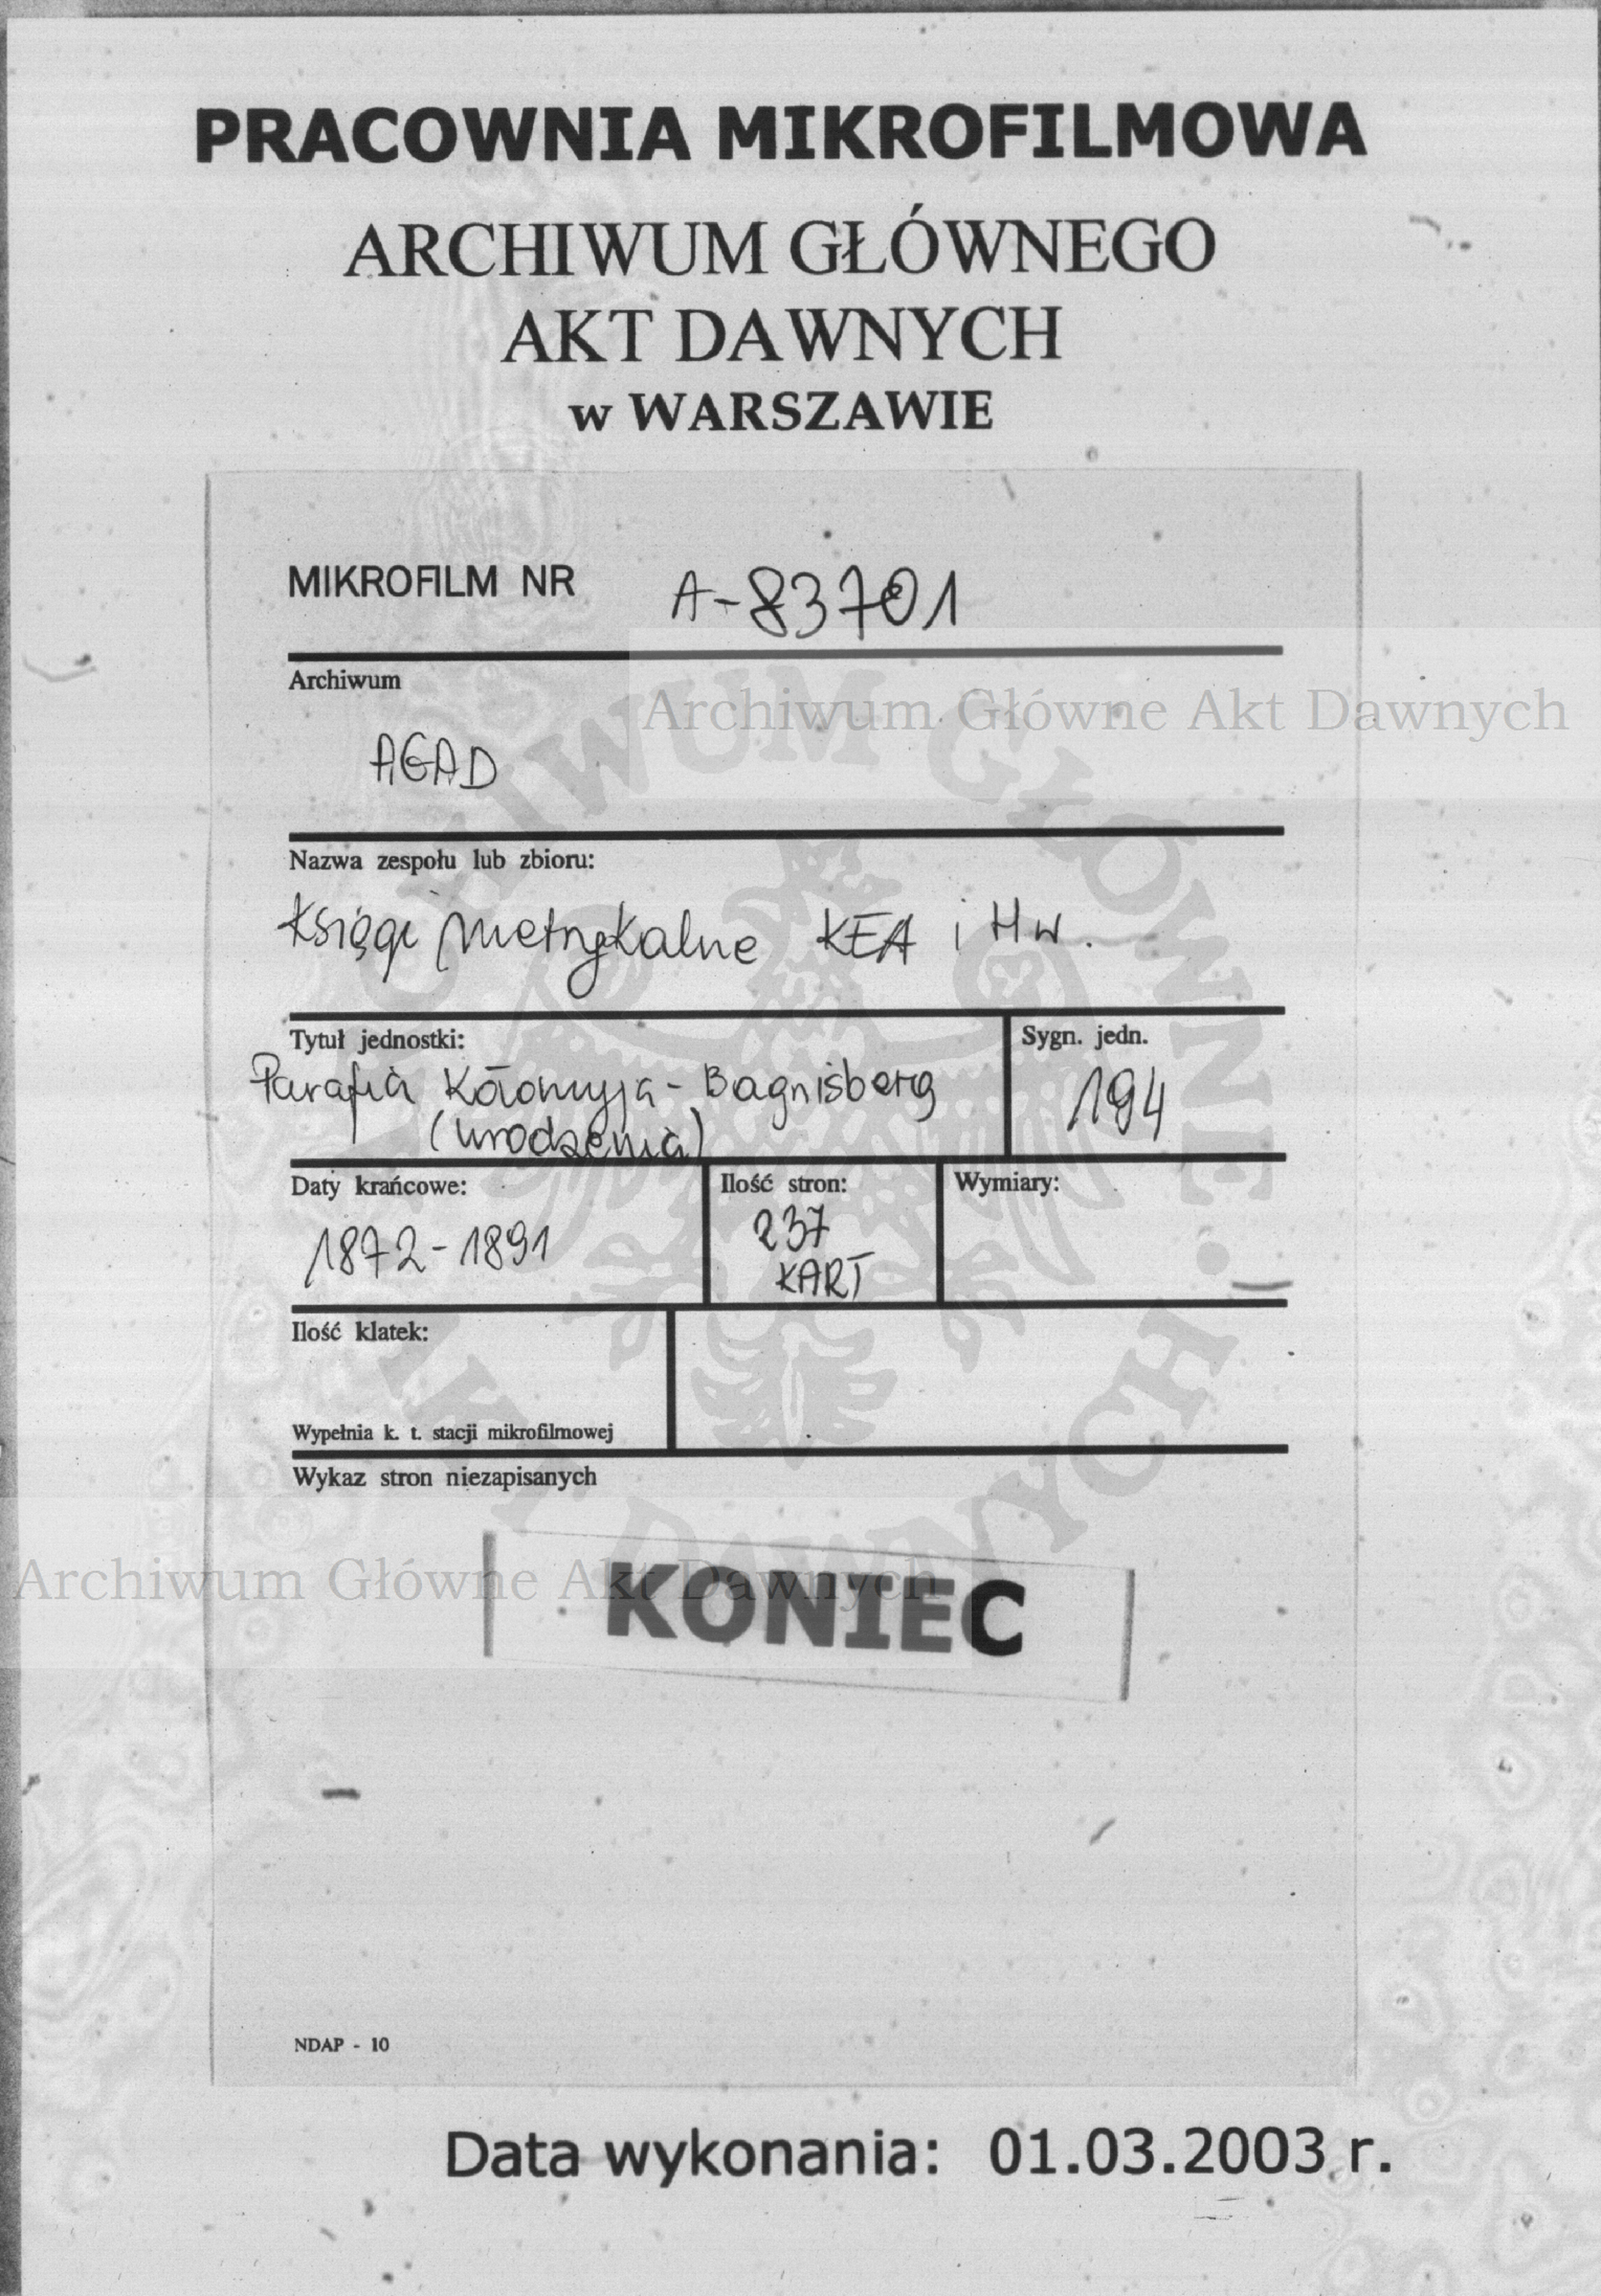 PRACOWNIA MIKROFILMOWA
ARCHIWUM GŁÓWNEGO
AKT DAWNYCH
w WARSZAWIE
MIKROFILM NR A-83701
Archiwum
Archiwum Główne Akt Dawnych
AGAD
Nazwa zespołu lub zbioru:
Księgi metrykalne KEA i Hw.
Tytuł jednostki: Sygn. jedn.
Parafia Kołomyja - Bagnisberg 194
(urodzenia)
Daty krańcowe: Ilość stron: Wymiary:
1872-1891 237
KART
Ilość klatek:
Wypełnia k. t. stacji mikrofilmowej
Wykaz stron niezapisanych
Archiwum Główne Akt Dawnych
KONIEC
NDAP - 10
Data wykonania: 01.03.2003 r.
ARCHIWUM GŁÓWNE AKT DAWNYCH